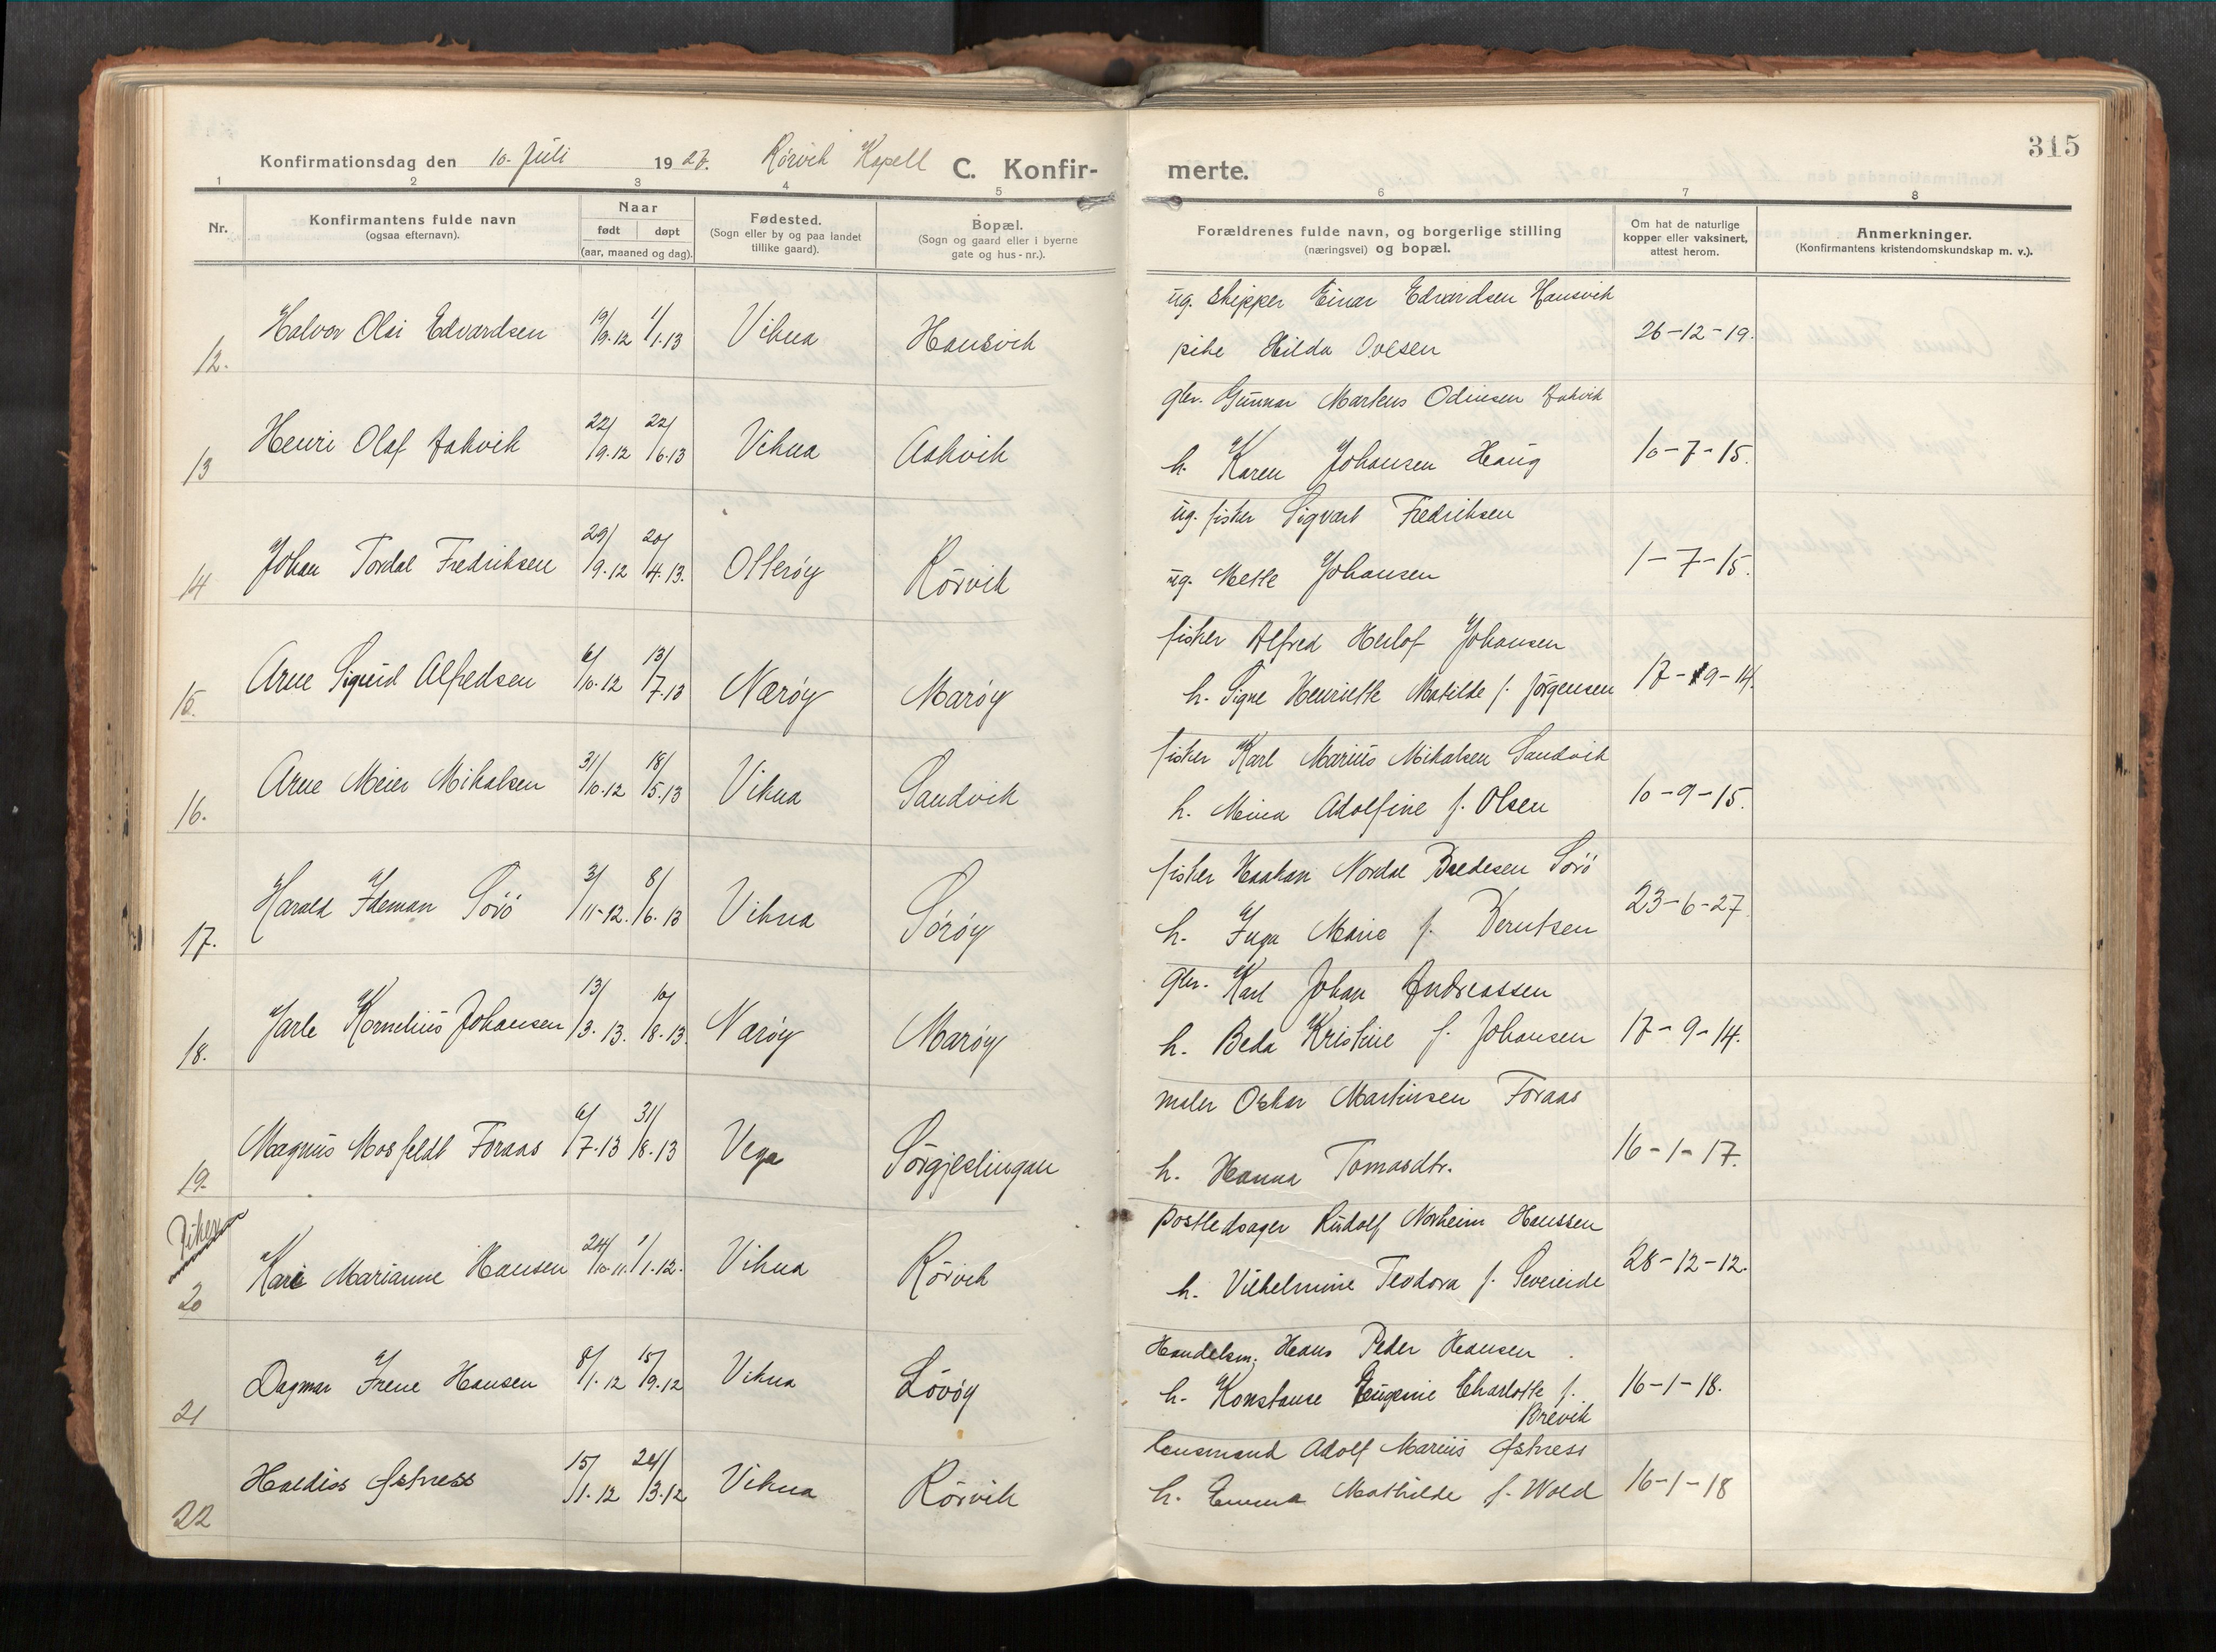 315
Konfirmationsdag den 10. Juli 1927. Rörvik Kapell C. Konfir- merte.
1 2 3 4 5 6 7 8
Nr.
Konfirmantens fulde navn
(ogsaa efternavn).
Naar
født døpt
(aar, maaned og dag).
Fødested.
(Sogn eller by og paa landet
tillike gaard).
Bopæl.
(Sogn og gaard eller i byerne
gate og hus-nr.).
Forældrenes fulde navn, og borgerlige stilling
(næringsvei) og bopæl.
Om hat de naturlige
kopper eller vaksinert,
attest herom.
Anmerkninger.
(Konfirmantens kristendomskundskap m. v.).
ug. skipper Einar Edvardsen Hansvik
12. Halvor Olai Edvardsen 19/9.12 1/1.13 Vikna Hansvik pike Hilda Ovesen 26-12-19.
gbr. Gunnar Markus Odinsen Aakvik
13 Henri Olaf Aakvik 22/9.12 22/6.13 Vikna Aakvik h. Karen Johansen Haug 10-7-15.
ug. fisker Sigvart Fredriksen
14 Johan Tordal Fredriksen 29/9.12 20/4.13. Otterøy Rörvik ug. Mette Johansen 1-7-15.
fisker Alfred Herlof Johansen
15. Arne Sigurd Alfredsen 6/10.12 13/7.13 Nærøy Marøy h. Signe Henriette Matilde f. Jörgensen 17-9-14.
fisker Karl Marius Mikalsen Sandvik
16. Arne Meier Mikalsen 31/10.12 18/5.13 Vikna Sandvik h. Mina Adolfine f. Olsen 10-9-15.
fisker Haakan Nordal Bredesen Sörö
17. Harald Ideman Sörö 3/11-12. 8/6.13 Vikna Sörøy h. Inga Marie f. Berntsen 23-6-27
gbr. Karl Johan Andreassen
18. Jarle Kornelius Johansen 13/3.13. 10/8.13. Nærøy Marøy h. Beda Kristine f. Johansen 17-9-14.
maler Oskar Martinsen Foraas
19. Magnus Mosfeldt Foraas 6/7.13 31/8.13 Vega Sörgjeslingan h. Hanna Tomasdtr. 16-1-17.
Piker
postledsager Rudolf Norheim Hanssen
20 Kari Marianne Hansen 24/10.11. 1/1.12. Vikna Rörvik h. Vilhelmine Teodora f. Severeide 28-12-12.
Handelsm. Hans Peder Hansen
21 Dagmar Irene Hansen 8/1.12 15/9.12 Vikna Lövöy h. Konstanse Eugenie Charlotte f. 16-1-18.
Brevik
lensmand Adolf Marius Østness
22 Haldis Østness 15/1.12 24/3.12 Vikna Rörvik h. Emma Mathilde f. Wold 16-1-18